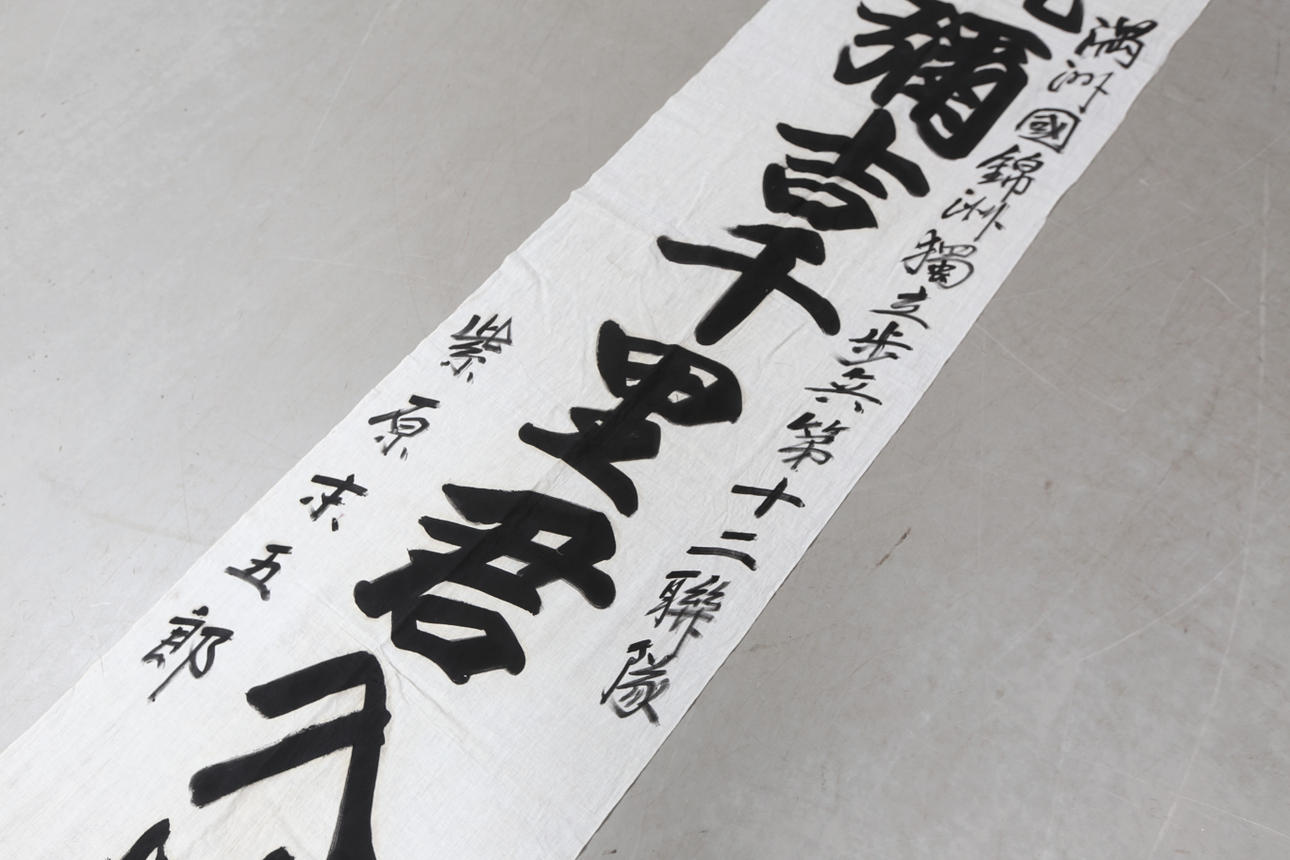 満洲國錦洲獨立歩兵第十二聯隊
彌吉千里君入
柴原末五郎